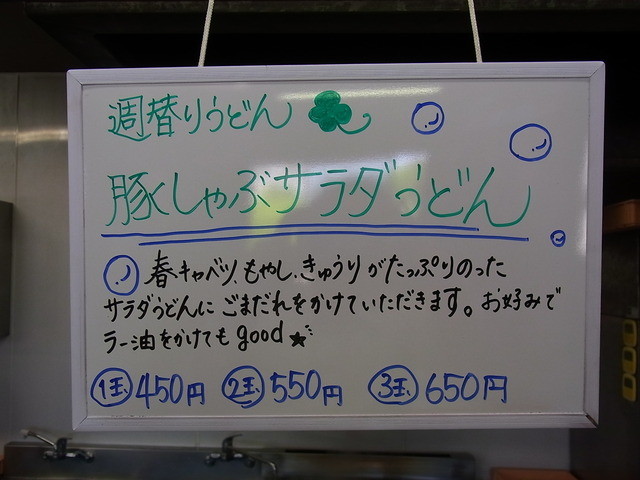 週替りうどん
豚しゃぶサラダうどん
春キャベツ、もやし、きゅうりがたっぷりのった
サラダうどんにごまだれをかけていただきます。お好みで
ラー油をかけてもgood★
1玉 450円 2玉 550円 3玉 650円